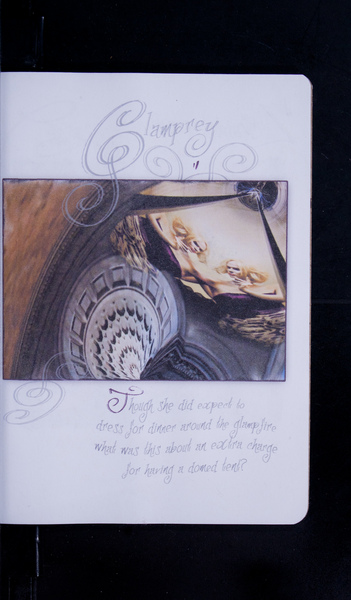 Glamprey
Though she did expect to
dress for dinner around the glampfire
what was this about an extra charge
for having a domed tent?